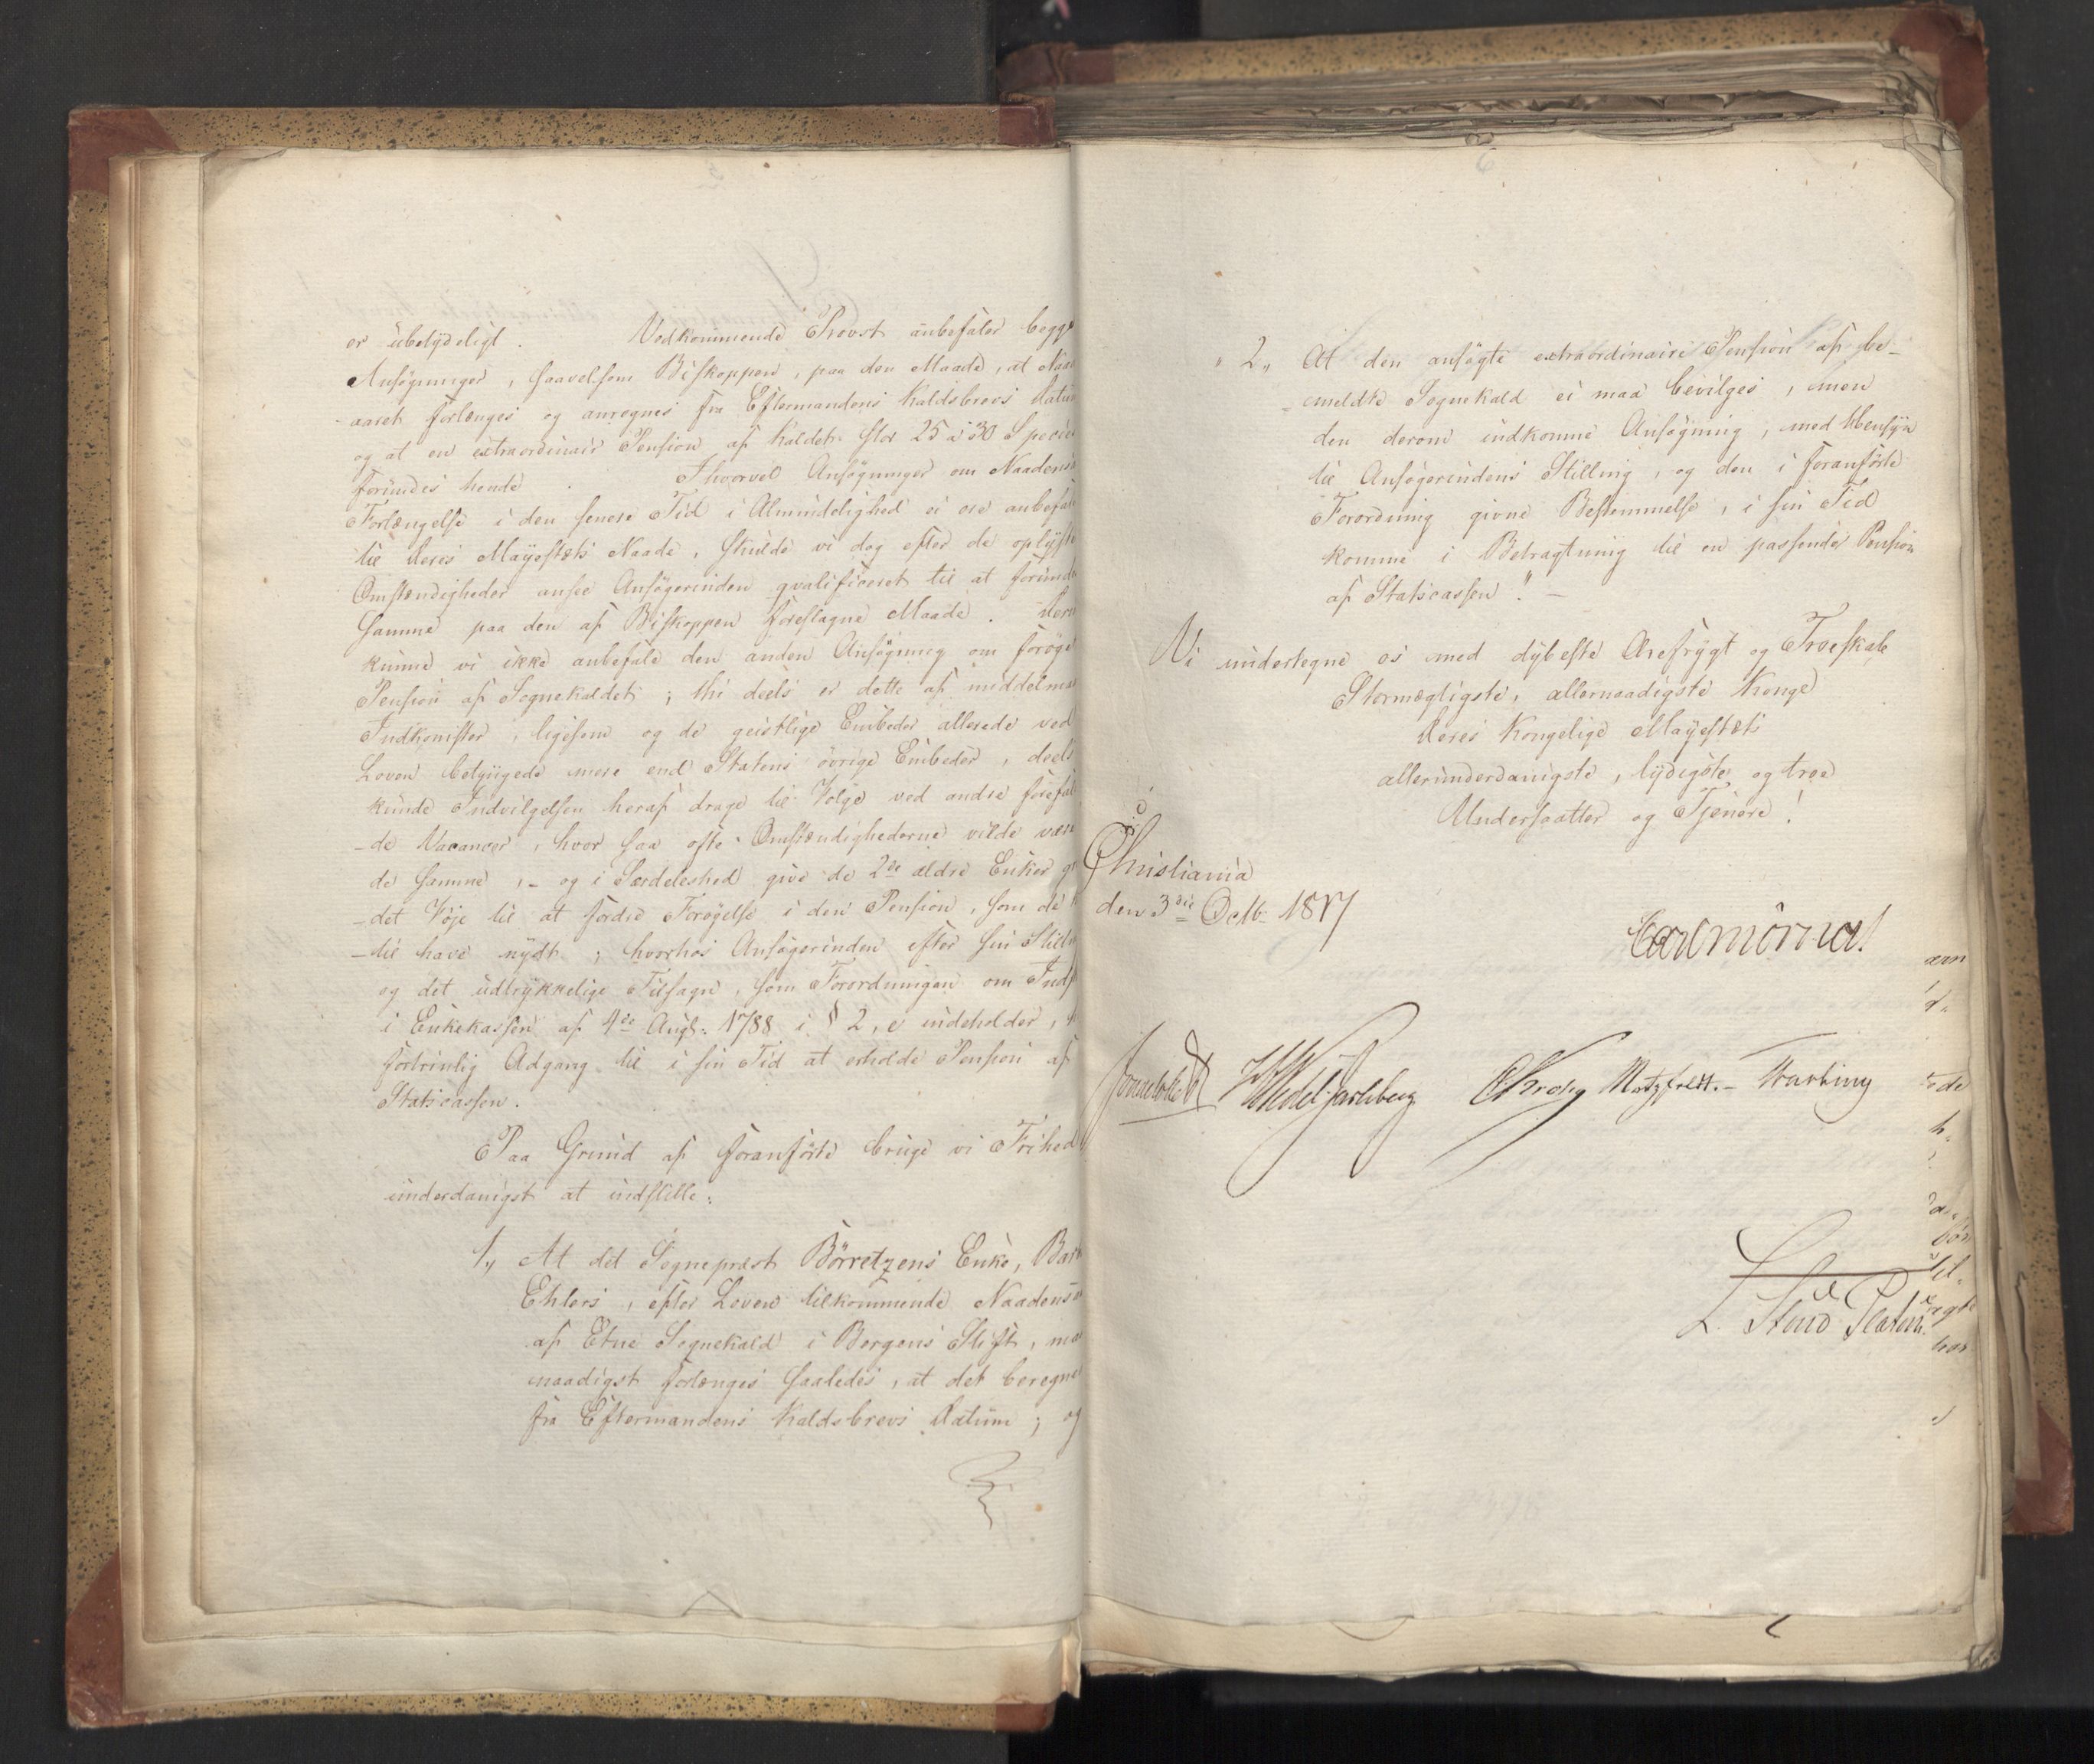 er ubetydeligt. Vedkommende Provst anbefaler begge
Ansøgninger, saavelsom Biskoppen, paa den Maade, at Naads
-aaret forlænges og anregnes fra Eftermandens Kaldsbrevs Datum
og at en extraordinair Pension af Kaldet stor 25 a 30 Specier
forundes hende. Ihvorvel Ansøgninger om Naadens
Forlængelse i den senere Tid i Almindelighed ei ere anbefale
til Deres Mayestæts Naade, skulde vi dog efter de oplyste
Omstændigheder ansee Ansøgerinden qvalificeret til at forundes
samme paa den af Biskoppen foreslagne Maade.
kunne vi ikke anbefale den anden Ansøgning om forøget
Pension af Sognekaldet; thi deels er dette af middelmaa
Indkomster, ligesom og de geistlige Embeder allerede ved
Loven betyngede mere end Statens øvrige Embeder, deels
kunde Indvilgelsen heraf drage til Følge ved andre forefal
-de Vacancer, hvor saa ofte Omstændighederne vilde være
de samme, - og i Særdeleshed give de 2de ældre Enker
-det Føje til at fordre Forøgelse i den Pension, som de
-til have nydt; hvorhos Ansøgerinden efter sin Stilling
og det udtrykkelige Tilsagn, som Forordningen om Inds
i Enkekassen af 1ste Augs. 1788 i § 2, e indeholder,
fortrinlig Adgang til i sin Tid at erholde Pension af
Statscassen.
Paa Grund af foranførte bruge vi Frihed
underdanigst at indstille:
1., At det Sognepræst Börretzens Enke,
Ehlers, efter Loven tilkommende Naadens
af Etne Sognekald i Bergens Stift, maa
naadigst forlænges saaledes, at det beregnes
fra Eftermandens Kaldsbrevs Datum; og
"2„ At den ansøgte extraordinaire Pension af be-
-meldte Sognekald ei maa bevilges, men
den derom indkomne Ansøgning, med Hensyn
til Ansøgerindens Stilling, og den i foranførte
Forordning givne Bestemmelse, i sin Tid
komme i Betragtning til en passende Pension
af Statscassen". -
Vi undertegne os med dybeste Ærefrygt og Troeskab
Stormægtigste, allernaadigste Konge
Deres Kongelige Mayestæts
allerunderdanigste, lydigste og troe
Undersaatter og Tjenere!
Christiania
den 3die Octb. 1817
Carl Mörner
Sommerhielm Wedel Jarlsberg CKrohg Motzfeldt. - Fasting
L. Stoud Platou.